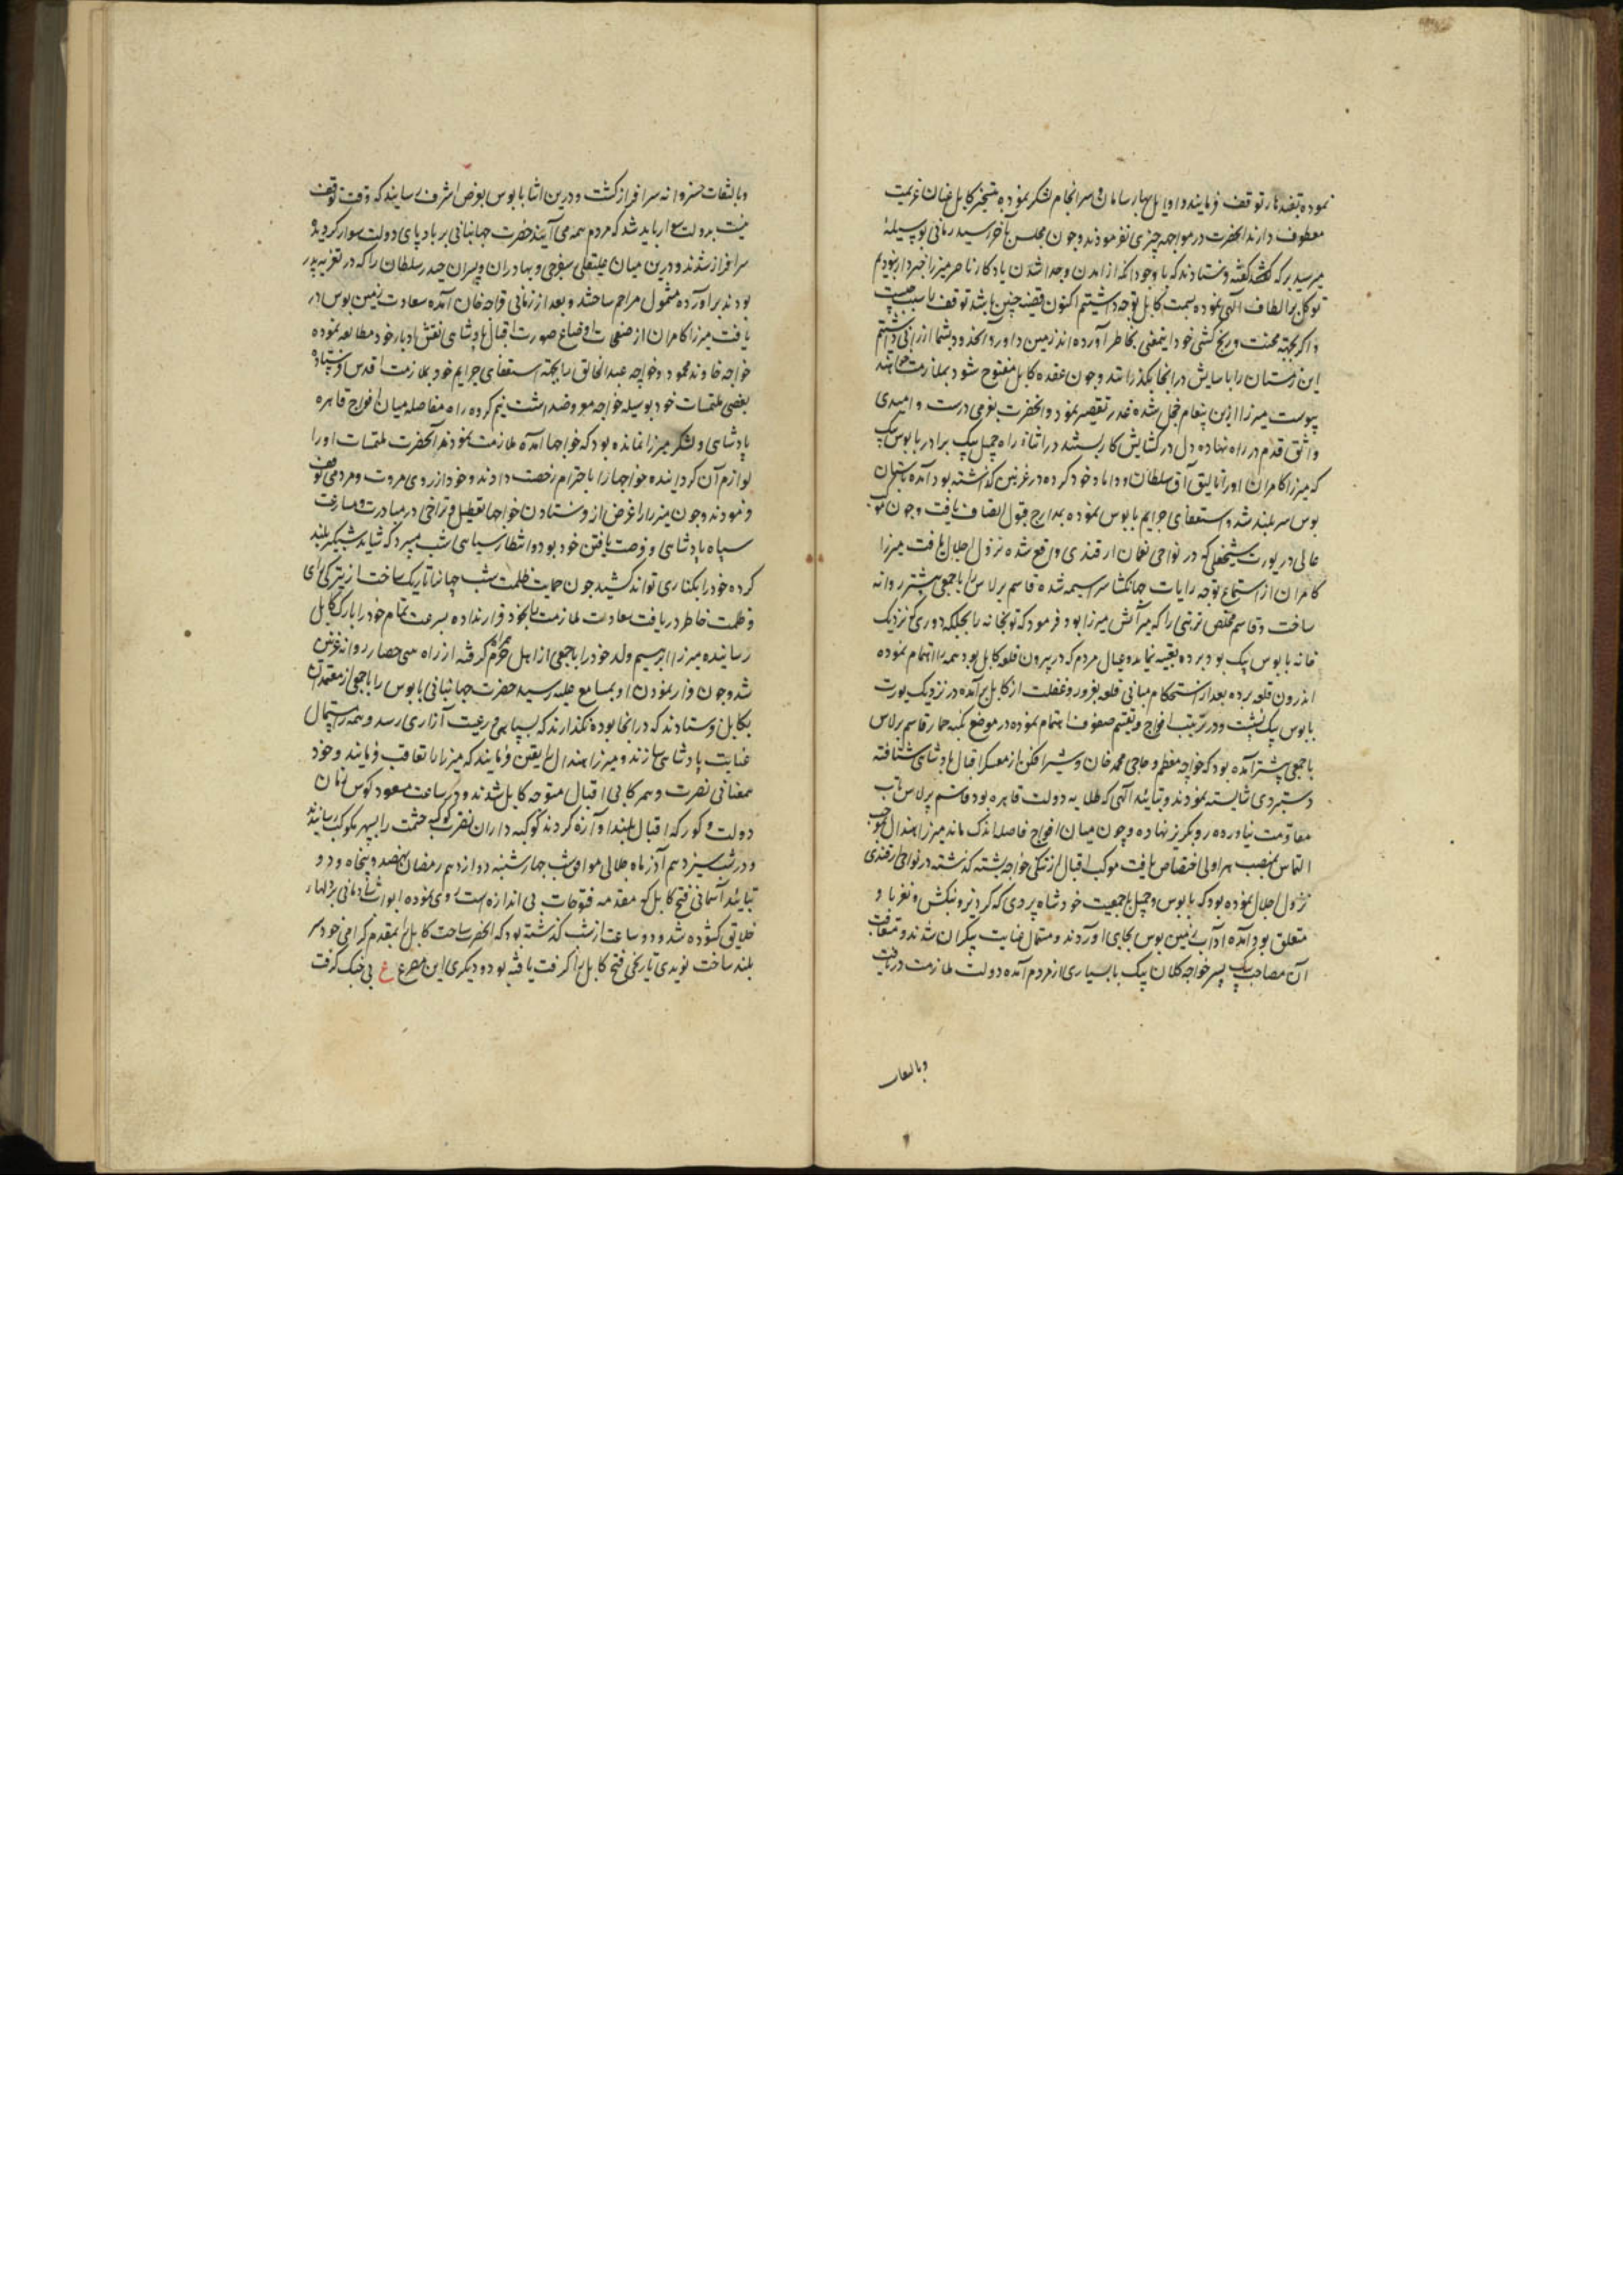 نموده بقندهار توقف فرمایند و اوایل بهار سامان و سرانجام لشکر نموده بتسخیر کابل عنان عزیمت
معطوف دارند آنحضرت در مواجهه چیزی نفرمودند و چون مجلس بآخر رسید زمانی بوسیلهٔ
میر سید برکه گفته فرستادند که با وجود آنکه از آمدن و جدا شدن یادگار ناصر میرزا خبردار نبودیم
توکل بر الطاف الهی نموده بسمت کابل توجه داشتیم اکنون قضیه چنین باشد توقف را سبب چیست
و اگر بجهته محنت و رنج کشی خود اینمعنی بخاطر آورده‌اند زمین داور و آنحدود بشما ارزانی داشتیم
این زمستان را بآسایش در آنجا بگذرانند و چون عقده کابل مفتوح شود بملازمت خواهند
پیوست میرزا ازین پیغام خجل شده عذر تقصیر نمود و آنحضرت بعزمی درست و امیدی
واثق قدم در راه نهاده دل در کشایش کار بستند در اثناء راه جمیل بیک برادر بابوس بیک
که میرزا کامران او را تالیق آق سلطان داماد خود کرده در غزنین گذاشته بود آمده باستان
بوس سربلند شد و استعفای جرایم بابوس نموده بمدارج قبول اتصاف یافت و چون موکب
عالی در یورت شیخعلی که در نواحی نغمان ارقندی واقع شده نزول اجلال یافت میرزا
کامران از استماع توجه رایات جهانکشا سراسیمه شده قاسم برلاس را با جمعی پیشتر روانه
ساخت و قاسم مخلص تربتی را که میرآتش میرزا بود فرمود که توپخانه را بجلکه دوری که نزدیک
خانه بابوس بیک بود برده تعبیه نماید و عیال مردم که در بیرون قلعه کابل بود همه را اهتمام نموده
اندرون قلعه برده بعد از استحکام مبانی قلعه بغرور و غفلت از کابل برآمده در نزدیک یورت
بابوس بیک نشست و در ترتیب افواج و تقسیم صفوف اهتمام نموده در موضع تکیه خمار قاسم برلاس
با جمعی پیشتر آمده بود که خواجه معظم و حاجی محمد خان و شیر افکن از معسکر اقبال پادشاهی شتافته
دستبردی شایسته نمودند و بتائید الهی که طلایه دولت قاهره بود قاسم برلاس تاب
مقاومت نیاورده رو بگریز نهاده و چون میان افواج فاصله اندک ماند میرزا هندال بموجب
التماس بمنصب هراولی اختصاص یافت موکب اقبال از تنکی خواجه پشته گذشته در نواحی ارقندی
نزول اجلال نموده بود که بابوس و جمیل با جمعیت خود شاه بردی که گردیز و بنکش و نغر باو
متعلق بود آمده آداب زمین بوس بجای آوردند و مشمول عنایت بیکران شدند و متعاقب
آن مصاحب بیک پسر خواجه کلان بیک با بسیاری از مردم آمده دولت ملازمت دریافت
وبالتفات
وبالتفات خسروانه سرافراز کشت و درین اثنا بابوس بعرض اشرف رسایند که وقت توقف
نیست بدولت سوار باید شد که مردم همه می آیند حضرت جهانبانی بر بادپای دولت سوار کردیده
سرافراز شدند و درین میان علیقلی سفرچی و بهادران و پسران حیدر سلطان را که در تعزیه پدر
بودند برآورده مشمول مراحم ساختند و بعد از زمانی قراچه خان آمده سعادت زمین بوس در
یافت میرزا کامران از صفحات اوضاع صورت اقبال پادشاهی و نقش ادبار خود مطالعه نموده
خواجه خاوند محمود و خواجه عبدالخالق را بجهته استعفای جرایم خود بملازمت اقدس فرستاده
بعضی ملتمسات خود بوسیله خواجه معروضداشت نیم کروه راه مفاصله میان افواج قاهره
پادشاهی و لشکر میرزا نمانده بود که خواجها آمده ملازمت نمودند آنحضرت ملتمسات او را
لوازم آن کردانیده خواجها را باحترام رخصت دادند و خود از روی مروت و مردمی توقف
فرمودند و چون میرزا را غرض از فرستادن خواجها تعطیل و تراخی در مبادرت و مسارعت
سپاه پادشاهی و فرصت یافتن خود بود و انتظار سیاهی شب میبرد که شاید شبگیر بلند
کرده خود را بکناری تواند کشید چون حمایت ظلمت شب جهان را تاریک ساخت از تیرگی رای
و ظلمت خاطر دریافت سعادت ملازمت بخود قرار نداده بسرعت تمام خود را بارک کابل
رسانیده میرزا ابراهیم ولد خود را با جمعی از اهل حرم همراه گرفته از راه بینی حصار روانه غزنین
شد و چون فرار نمودن او بمسامع علیه رسید حضرت جهانبانی بابوس را با جمعی از معتمدان
بکابل فرستادند که در آنجا بوده نگذارند که بسپاهی و رعیت آزاری رسد و همه را استمال
عنایت پادشاهی سازند و میرزا هندال را تعین فرمایند که میرزا را تعاقب فرمایند و خود
بمعنانی نصرت و همرکابی اقبال متوجه کابل شدند و در ساعت مسعود کوس زنان
دولت و کورکه اقبال بلند آوازه کردند کوکبه داران نصرت کوکب حشمت را بسپهر بکوکب رسانیدند
و در شب سیزدهم آذر ماه جلالی موافق شب چهارشنبه دوازدهم رمضان نهصد و پنجاه و دو
بتائید آسمانی فتح کابل که مقدمه فتوحات بی اندازه است روی نموده ابواب شادمانی بر دلهای
خلایق کشوده شد و دو ساعت از شب گذشته بود که آنحضرت ساحت کابل را بمقدم گرامی خود سر
بلند ساخت نویدی تاریخی فتح کابل را گرفت یافته بود و دیگری این مصرع ع بی جنگ گرفت